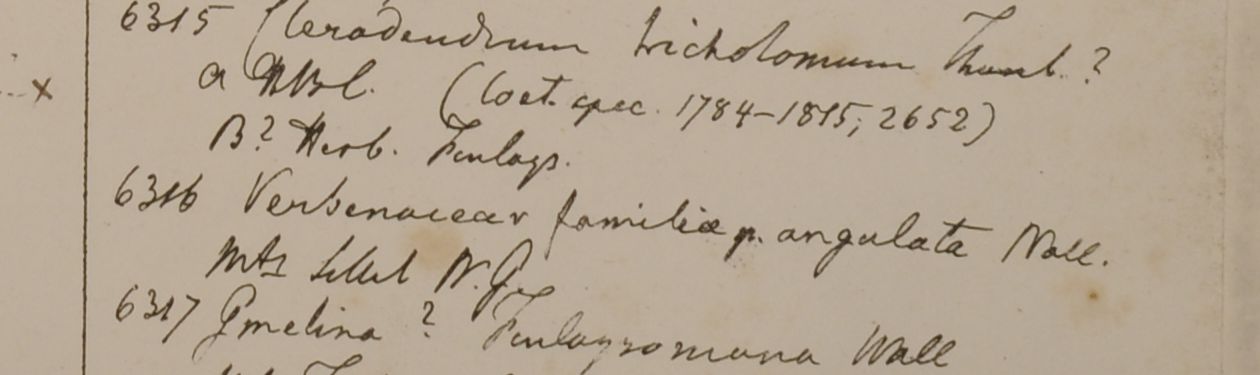 6315 Clerodendrum tricholomum Thunb.?
a HBC. (Coet. spec. 1784-1815; 2652)
B? Herb. Finlays.
6316 Verbenaceae familiae p. angulata Wall.
Mts Sillet W.G.
6317 Gmelina ? Finlaysoniana Wall